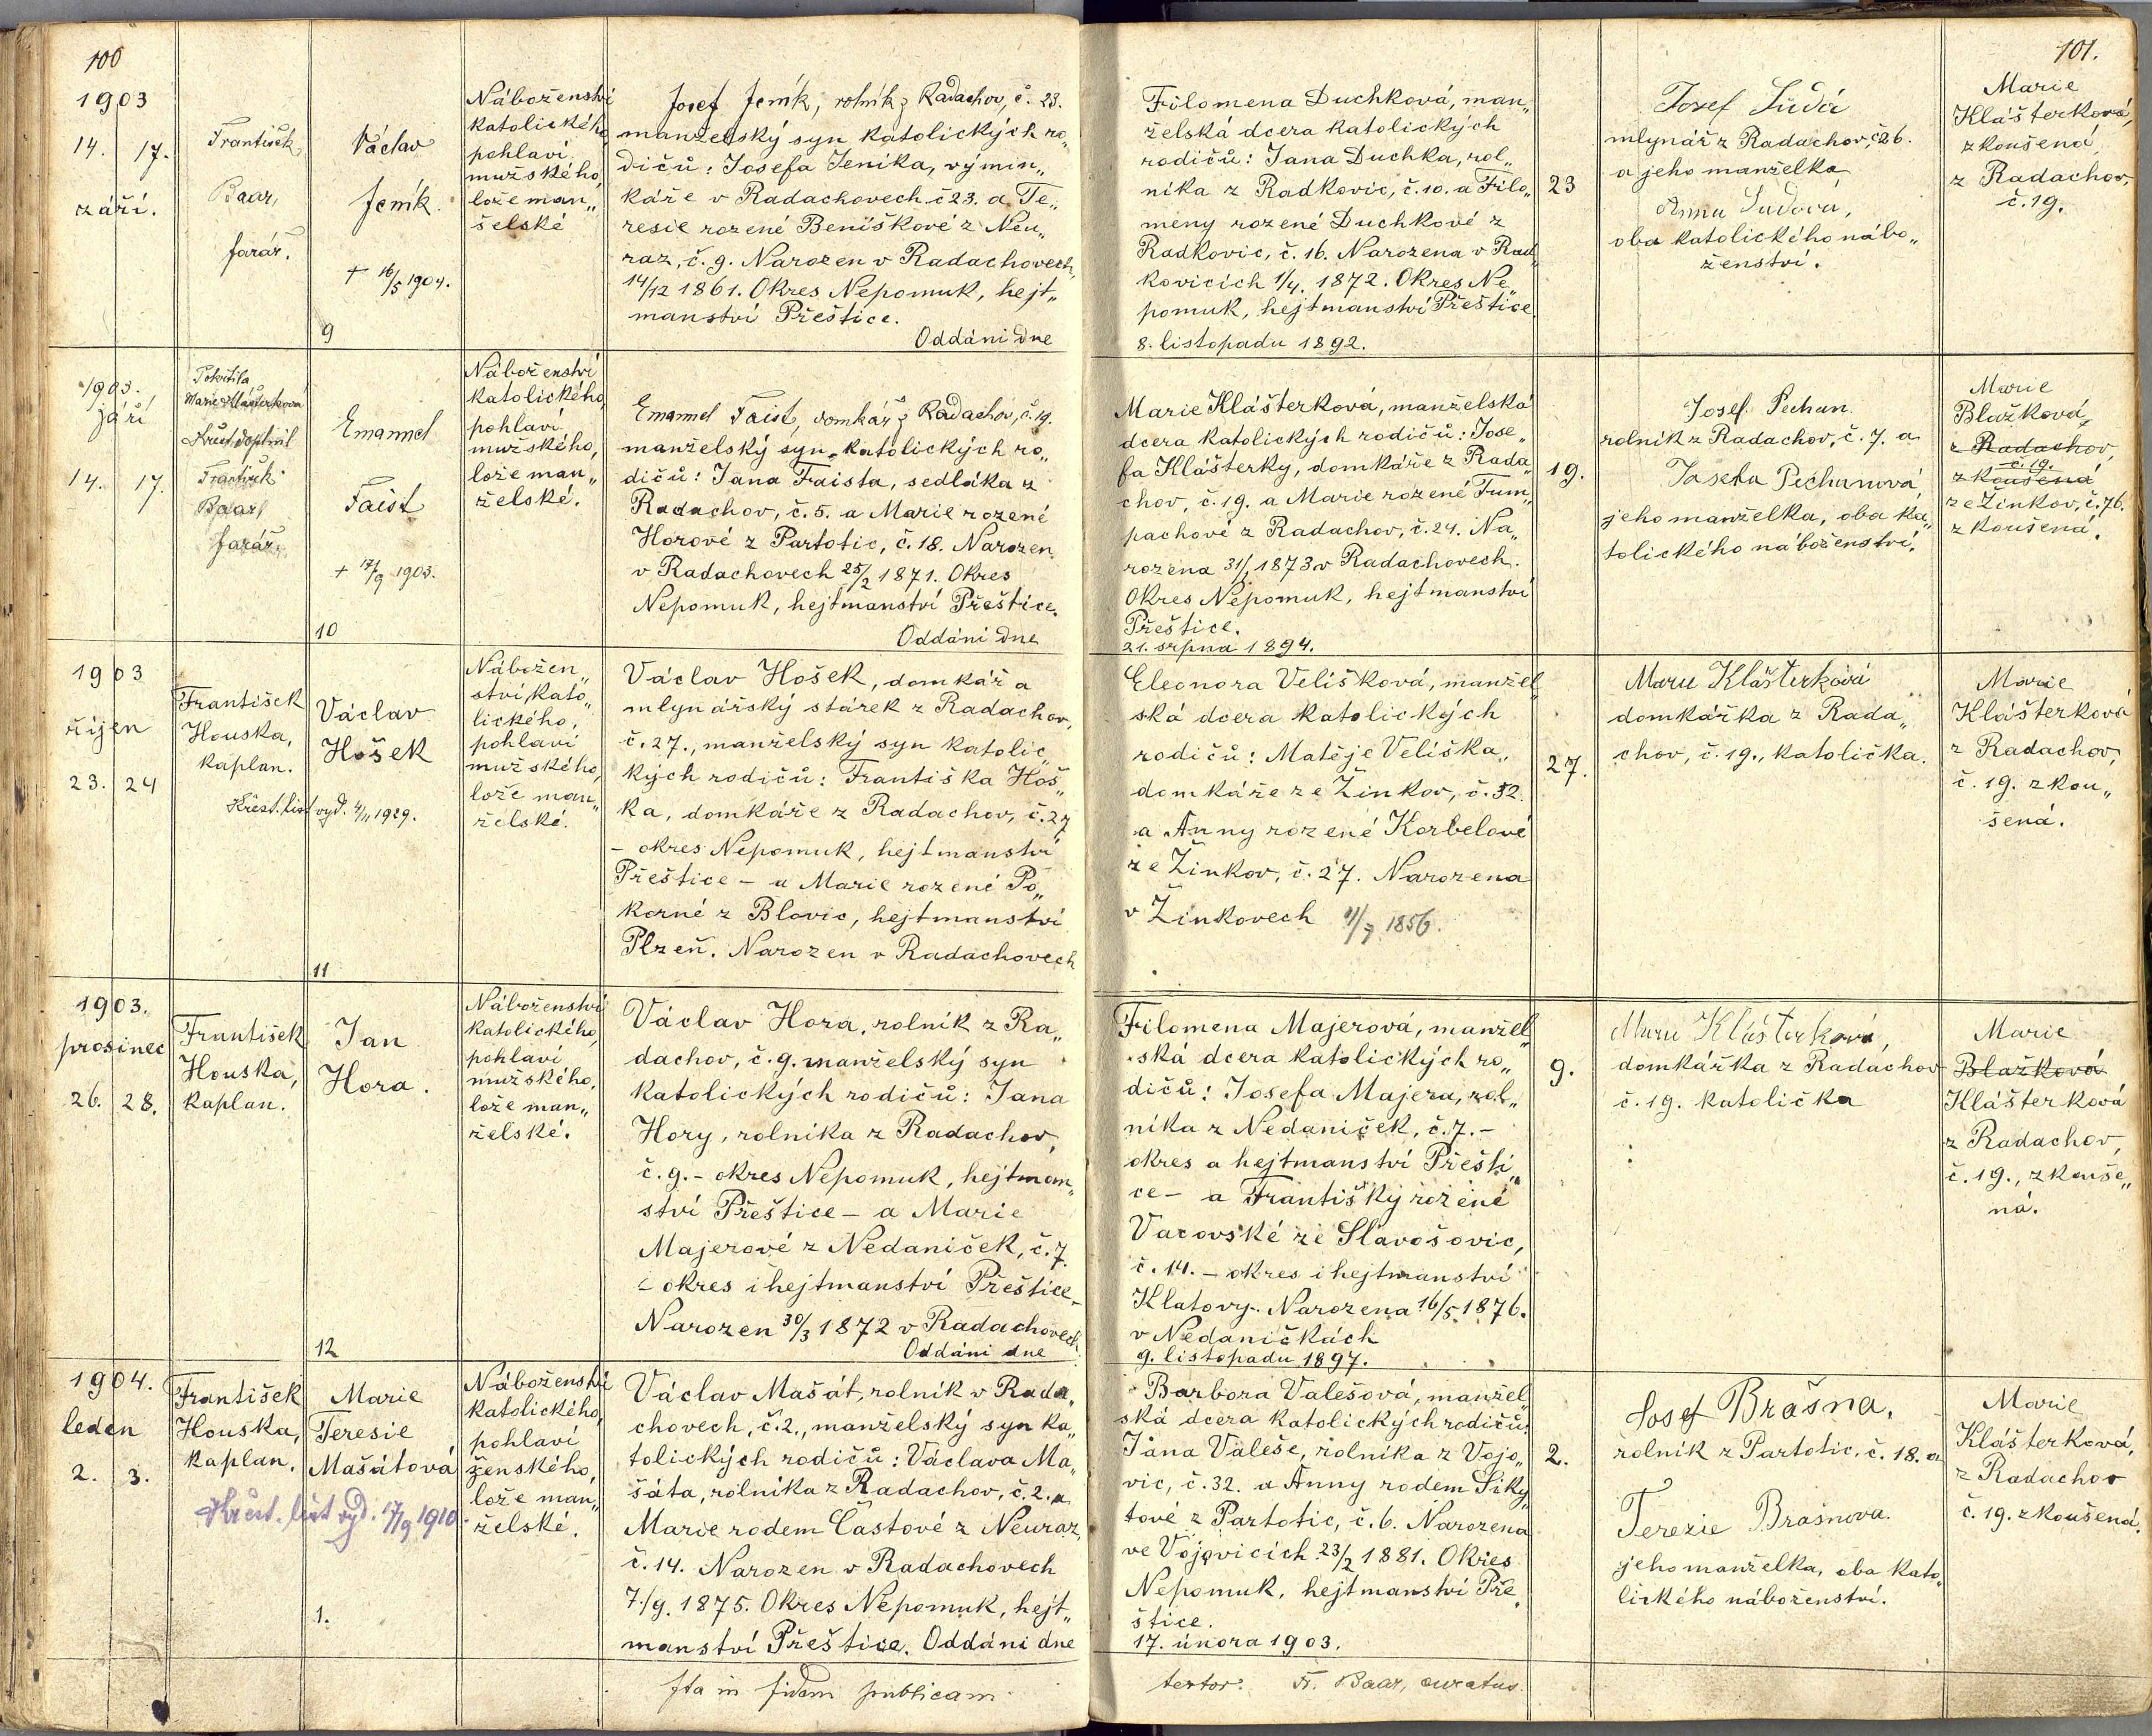 100
1903
14. 17.
září.
František
Baar,
farář.
Václav
Jeník.
+ 16/5 1904.
9
Náboženství
katolického,
pohlaví
mužského,
lože man„
želské
Josef Jeník, rolník z Radachov, č. 23.
manželský syn katolických ro„
dičů: Josefa Jeníka, výmin„
káře v Radachovech č 23. a Te„
resie rozené Beníškové z Neu„
raz, č. 9. Narozen v Radachovech,
14/12 1861. Okres Nepomuk, hejt„
manství Přeštice.
Oddáni dne
Filomena Duchková, man„
želská dcera katolických
rodičů: Jana Duchka, rol„
níka z Radkovic, č. 10. a Filo„
meny rozené Duchkové z
Radkovic, č. 16. Narozena v Rad„
kovicích 1/4. 1872. Okres Ne„
pomuk, hejtmanství Přeštice.
8. listopadu 1892.
23
Josef Suda
mlynář z Radachov, č 26.
a jeho manželka
Anna Sudova,
oba katolického nábo„
ženství.
101.
Marie
Klášterková,
zkoušená
z Radachov,
č. 19.
1903.
září
14. 17.
Pokřtila
Marie Klášterková
Křest doplnil
František
Baar,
farář.
Emanuel
Faist
+ 17/9 1903.
10
Náboženství
katolického,
pohlaví
mužského,
lože man„
želské.
Emanuel Faist, domkář z Radachov, č. 19.
manželský syn katolických ro„
dičů: Jana Faista, sedláka z
Radachov, č. 5. a Marie rozené
Horové z Partotic, č. 18. Narozen
v Radachovech 25/2 1871. Okres
Nepomuk, hejtmanství Přeštice.
Oddáni dne
Marie Klášterková, manželská
dcera katolických rodičů: Jose„
fa Klášterky, domkáře z Rada„
chov, č. 19. a Marie rozené Tum„
pachové z Radachov, č. 24. Na„
rozena 31/1 1873 v Radachovech.
Okres Nepomuk, hejtmanství
Přeštice.
21. srpna 1894.
19.
Josef Pechan
rolník z Radachov, č. 7. a
Josefa Pechanová
jeho manželka, oba ka„
tolického náboženství.
Marie
Blažková,
z Radachov,
č. 19.
zkoušená
ze Žinkov, č. 76.
zkoušená.
1903
říjen
23. 24
František
Houska,
kaplan.
Křest. list vyd. 4/11 1929.
Václav
Hošek
11
Nábožen„
ství kato„
lického,
pohlaví
mužského,
lože man„
želské.
Václav Hošek, domkář a
mlynářský stárek z Radachov,
č. 27., manželský syn katolic„
kých rodičů: Františka Hoš„
ka, domkáře z Radachov, č. 27
– okres Nepomuk, hejtmanství
Přeštice – a Marie rozené Po„
korné z Blovic, hejtmanství
Plzeň. Narozen v Radachovech
Eleonora Velíšková, manžel„
ská dcera katolických
rodičů: Matěje Velíška,
domkáře ze Žinkov, č. 32.
a Anny rozené Korbelové
ze Žinkov, č. 27. Narozena
v Žinkovech 11/7 1856.
27.
Marie Klášterková
domkářka z Rada„
chov, č. 19., katolička.
Marie
Klášterková
z Radachov,
č. 19. zkou„
šená.
1903.
prosinec
26. 28.
František
Houska,
kaplan.
Jan
Hora.
12
Náboženství
katolického,
pohlaví
mužského,
lože man„
želské.
Václav Hora, rolník z Ra„
dachov, č. 9. manželský syn
katolických rodičů: Jana
Hory, rolníka z Radachov,
č. 9. – okres Nepomuk, hejtman„
ství Přeštice – a Marie
Majerové z Nedaniček, č. 7.
– okres i hejtmanství Přeštice –
Narozen 30/3 1872 v Radachovech.
Oddáni dne
Filomena Majerová, manžel„
ská dcera katolických ro„
dičů: Josefa Majera, rol„
níka z Nedaniček, č. 7. –
okres a hejtmanství Přešti„
ce – a Františky rozené
Vacovské ze Slavošovic,
č. 14. – okres i hejtmanství
Klatovy. Narozena 16/5 1876.
v Nedaničkách
9. listopadu 1897.
9.
Marie Klášterková,
domkářka z Radachov
č. 19. katolička
Marie
Blažková
Klášterková
z Radachov,
č. 19., zkouše„
ná.
1904.
leden
2. 3.
František
Houska,
kaplan.
Křest. list vyd. 17/9 1910.
Marie
Teresie
Mašátová
1.
Náboženství
katolického,
pohlaví
ženského,
lože man„
želské.
Václav Mašát, rolník v Rada„
chovech, č. 2., manželský syn ka„
tolických rodičů: Václava Ma„
šáta, rolníka z Radachov, č. 2. a
Marie rodem Častové z Neuraz,
č. 14. Narozen v Radachovech
7./9. 1875. Okres Nepomuk, hejt„
manství Přeštice. Oddáni dne
Barbora Valešová, manžel„
ská dcera katolických rodičů:
Jana Valeše, rolníka z Vojo„
vic, č. 32. a Anny rodem Siky„
tové z Partotic, č. 6. Narozena
ve Vojovicích 23/2 1881. Okres
Nepomuk, hejtmanství Pře„
štice.
17. února 1903.
2.
Josef Brašna,
rolník z Partotic, č. 18. a
Terezie Brašnova.
jeho manželka, oba kato„
lického náboženství.
Marie
Klášterková,
z Radachov
č. 19. zkoušená.
Ita in fidem publicam
testor: Fr. Baar, curatus.